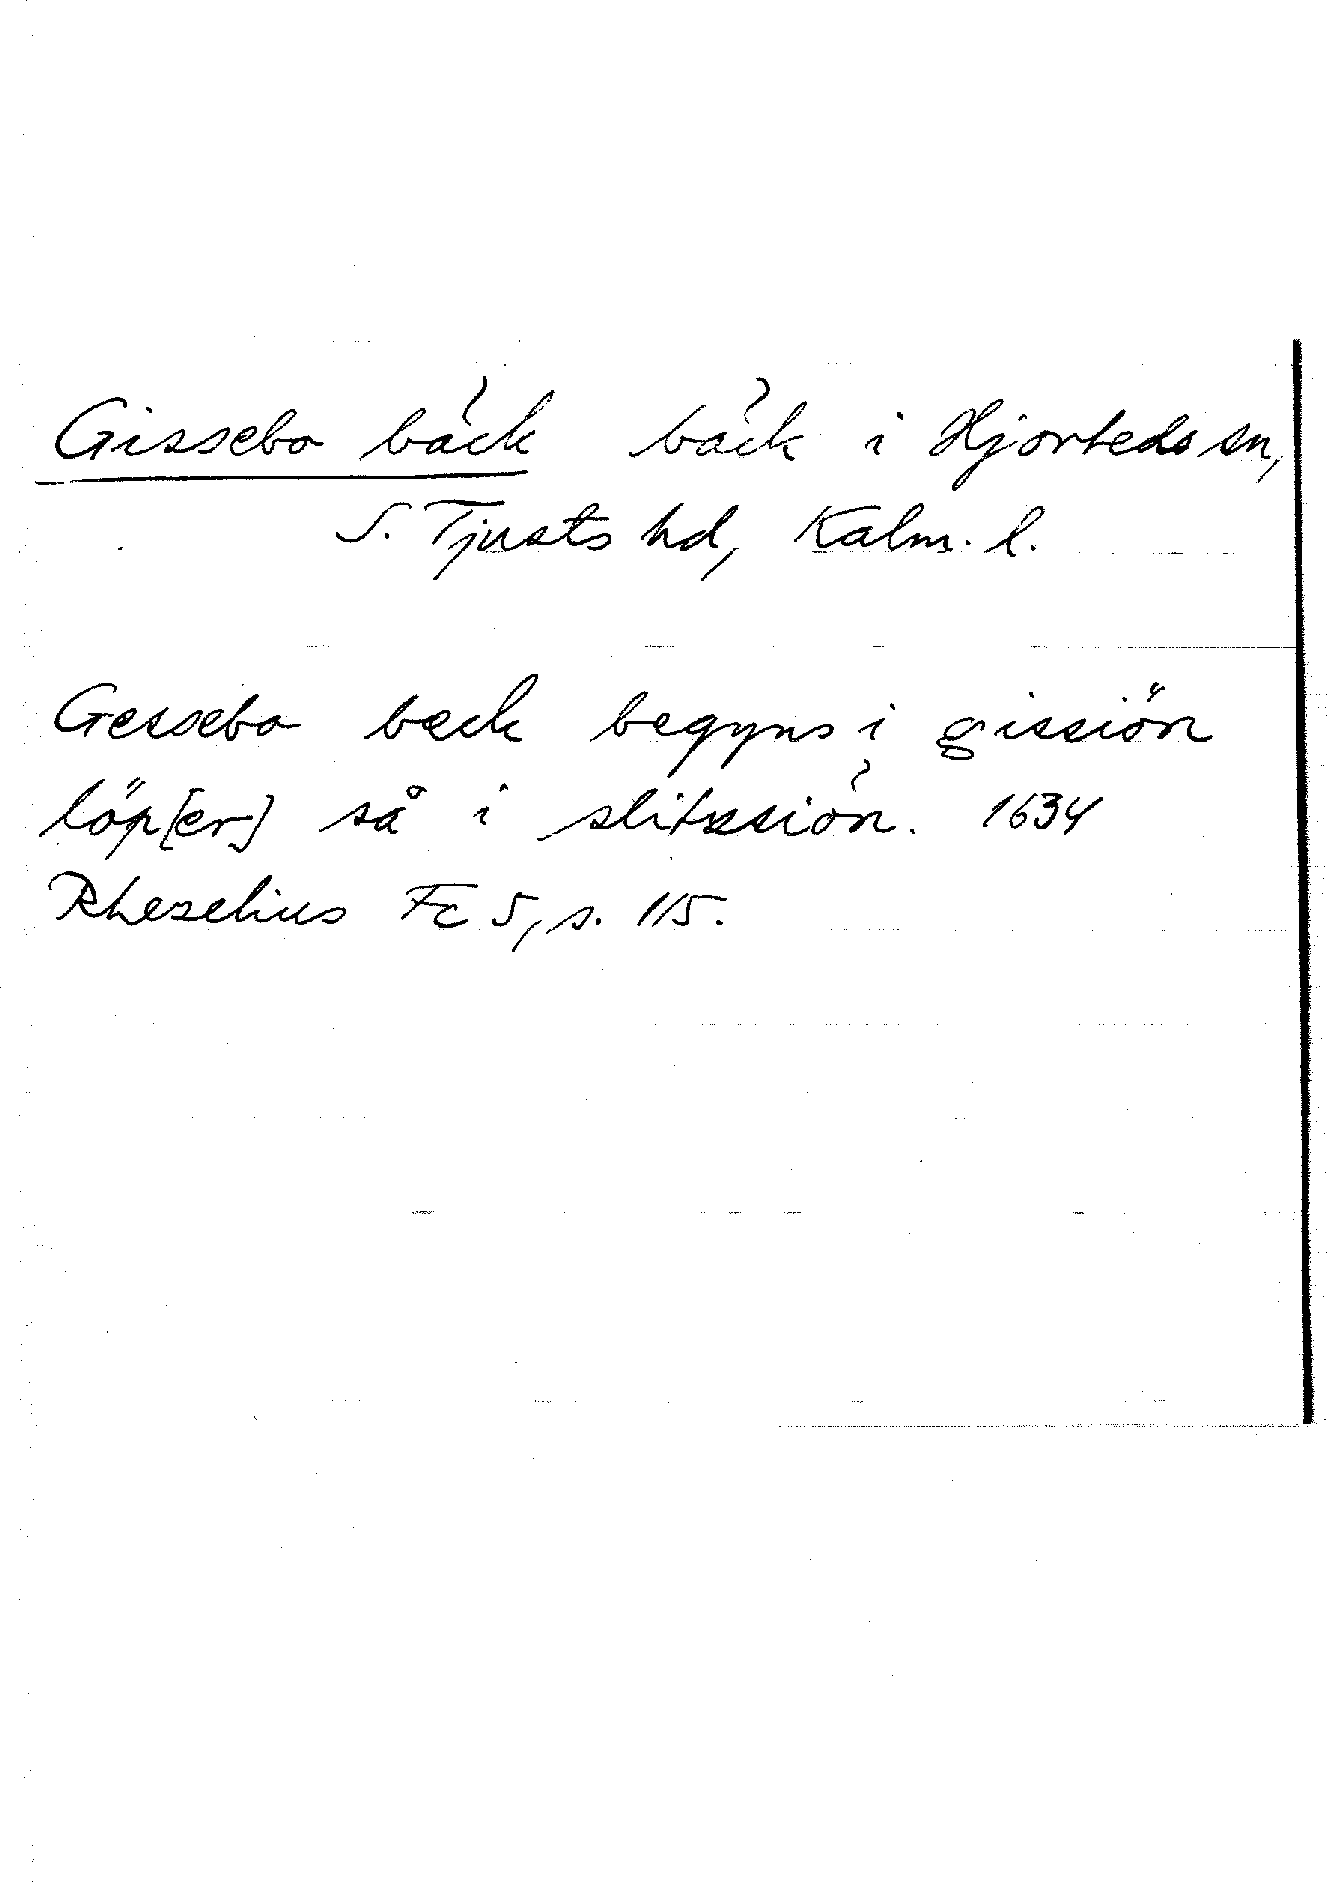 Gissebo bäck bäck i Hjorteds sn,
S. Tjusts hd, Kalm. l.
Gessebo beck begyns i gissiön
löp[er] så i slitssiön. 1634
Rhezelius Fc 5, s. 115.